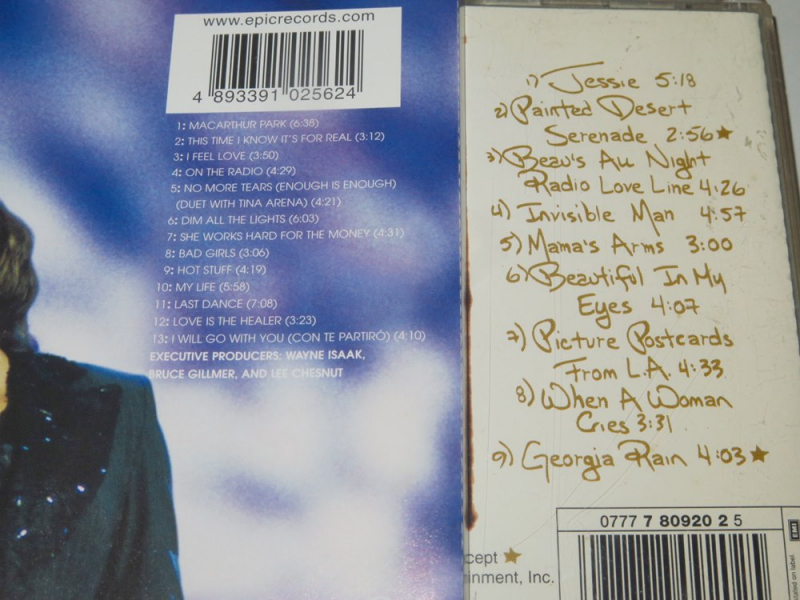 www.epicrecords.com
4 893391 025624
1: MACARTHUR PARK (6:38)
2: THIS TIME I KNOW IT'S FOR REAL (3:12)
3: I FEEL LOVE (3:50)
4: ON THE RADIO (4:29)
5: NO MORE TEARS (ENOUGH IS ENOUGH)
(DUET WITH TINA ARENA) (4:21)
6: DIM ALL THE LIGHTS (6:03)
7: SHE WORKS HARD FOR THE MONEY (4:31)
8: BAD GIRLS (3:06)
9: HOT STUFF (4:19)
10: MY LIFE (5:58)
11: LAST DANCE (7:08)
12: LOVE IS THE HEALER (3:23)
13: I WILL GO WITH YOU (CON TE PARTIRÓ) (4:10)
EXECUTIVE PRODUCERS: WAYNE ISAAK,
BRUCE GILLMER, AND LEE CHESNUT
1) Jessie 5:18
2) Painted Desert
Serenade 2:56★
3) Beau's All Night
Radio Love Line 4:26
4) Invisible Man 4:57
5) Mama's Arms 3:00
6) Beautiful In My
Eyes 4:07
7) Picture Postcards
From L.A. 4:33
8) When A Woman
Cries 3:31
9) Georgia Rain 4:03★
0777 7 80920 2 5
EMI
cept ★
rinment, Inc.
on label